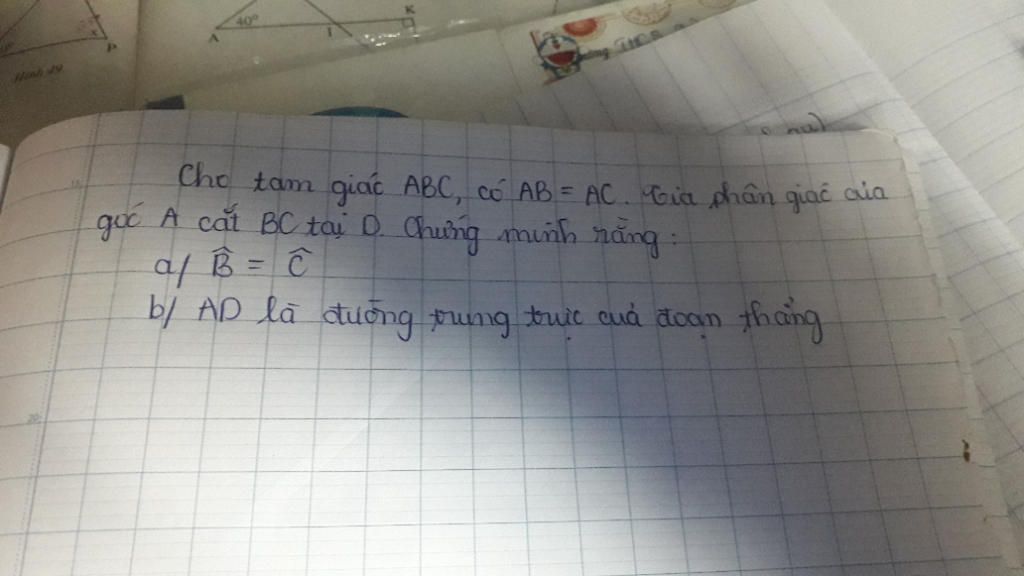 A 40° I K
P
Hình 49
THCS
Cho tam giác ABC, có AB = AC. Tia phân giác của
góc A cắt BC tại D. Chứng minh rằng:
a/ B̂ = Ĉ
b/ AD là đường trung trực của đoạn thẳng